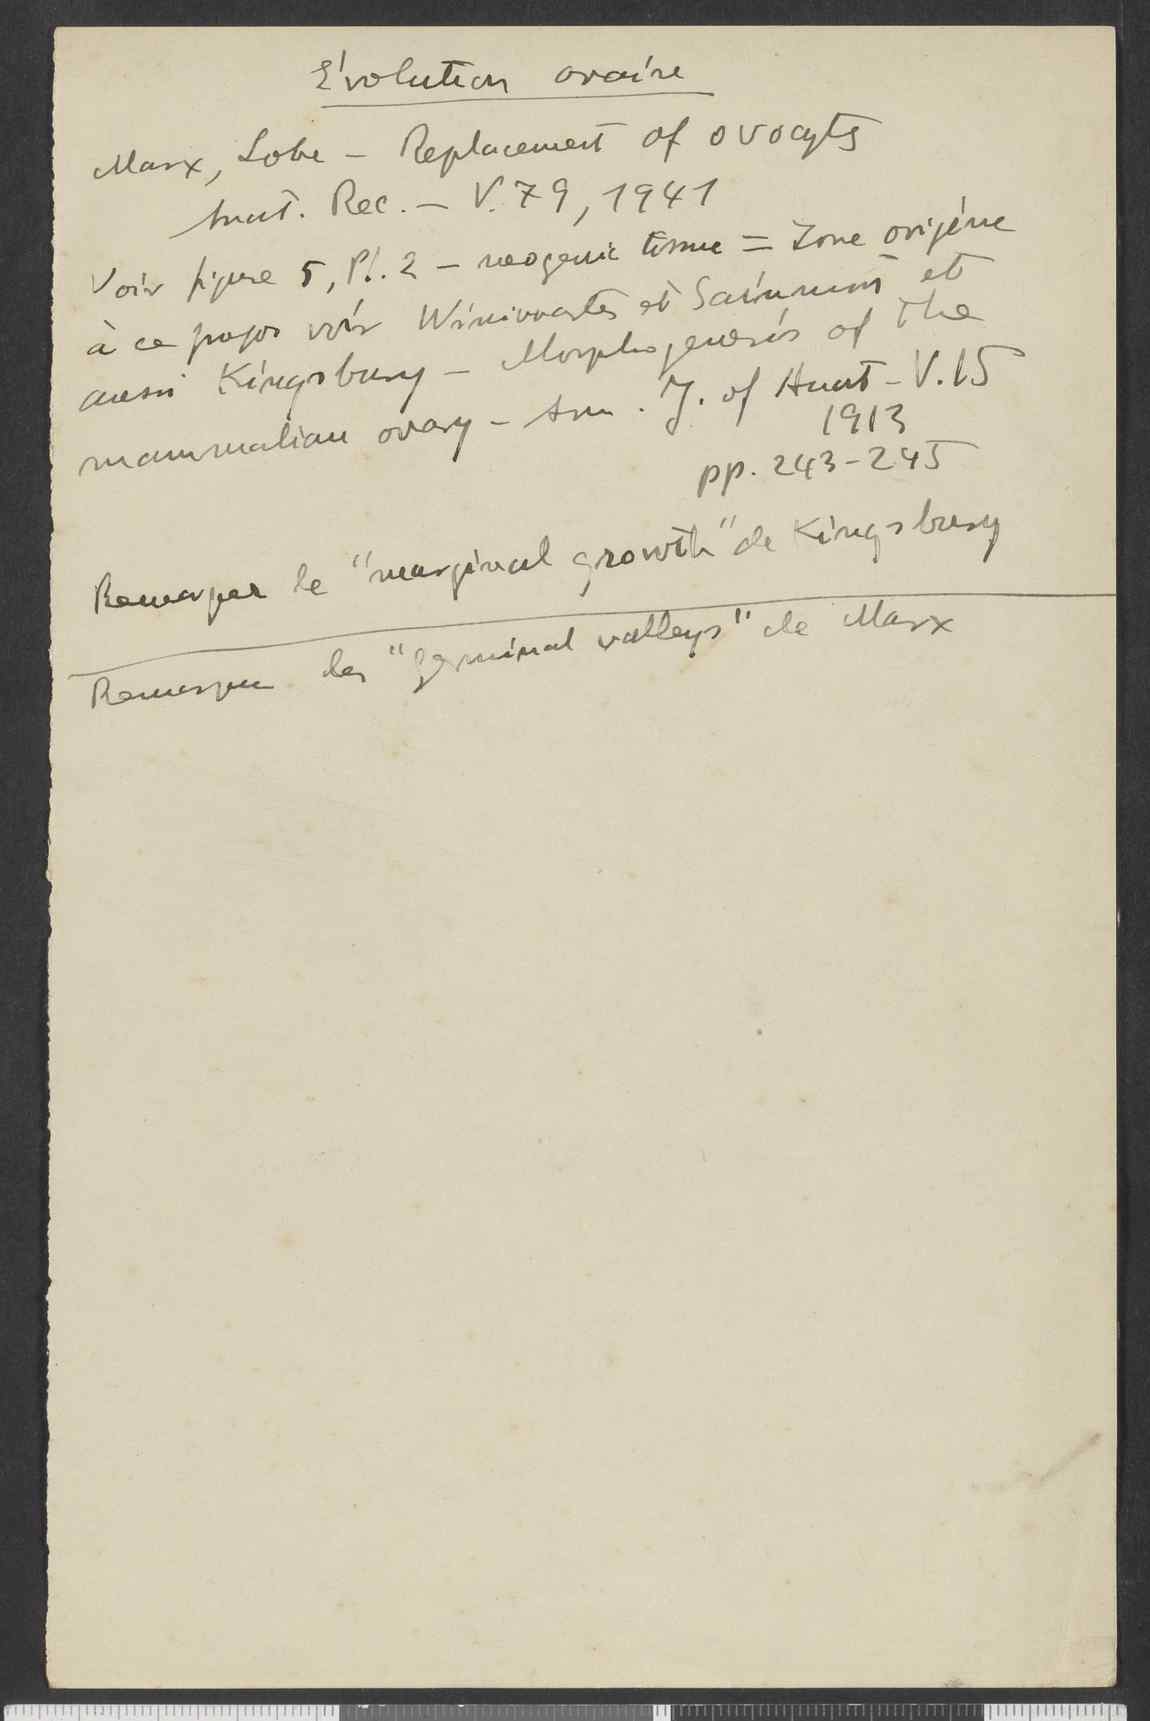 Évolution ovaire
Marx, Lobe – Replacement of ovocyts
Anat. Rec. – V. 79, 1941
Voir figure 5, Pl. 2 – neogenic tissue = Zone origine
à ce propos voir Winiwarter et Sainmont et
aussi Kingsbury – Morphogenesis of the
mammalian ovary – Am. J. of Anat – V. 15
1913
pp. 243-245
Remarquer le "marginal growth" de Kingsbury
Remarquer les "germinal valleys" de Marx